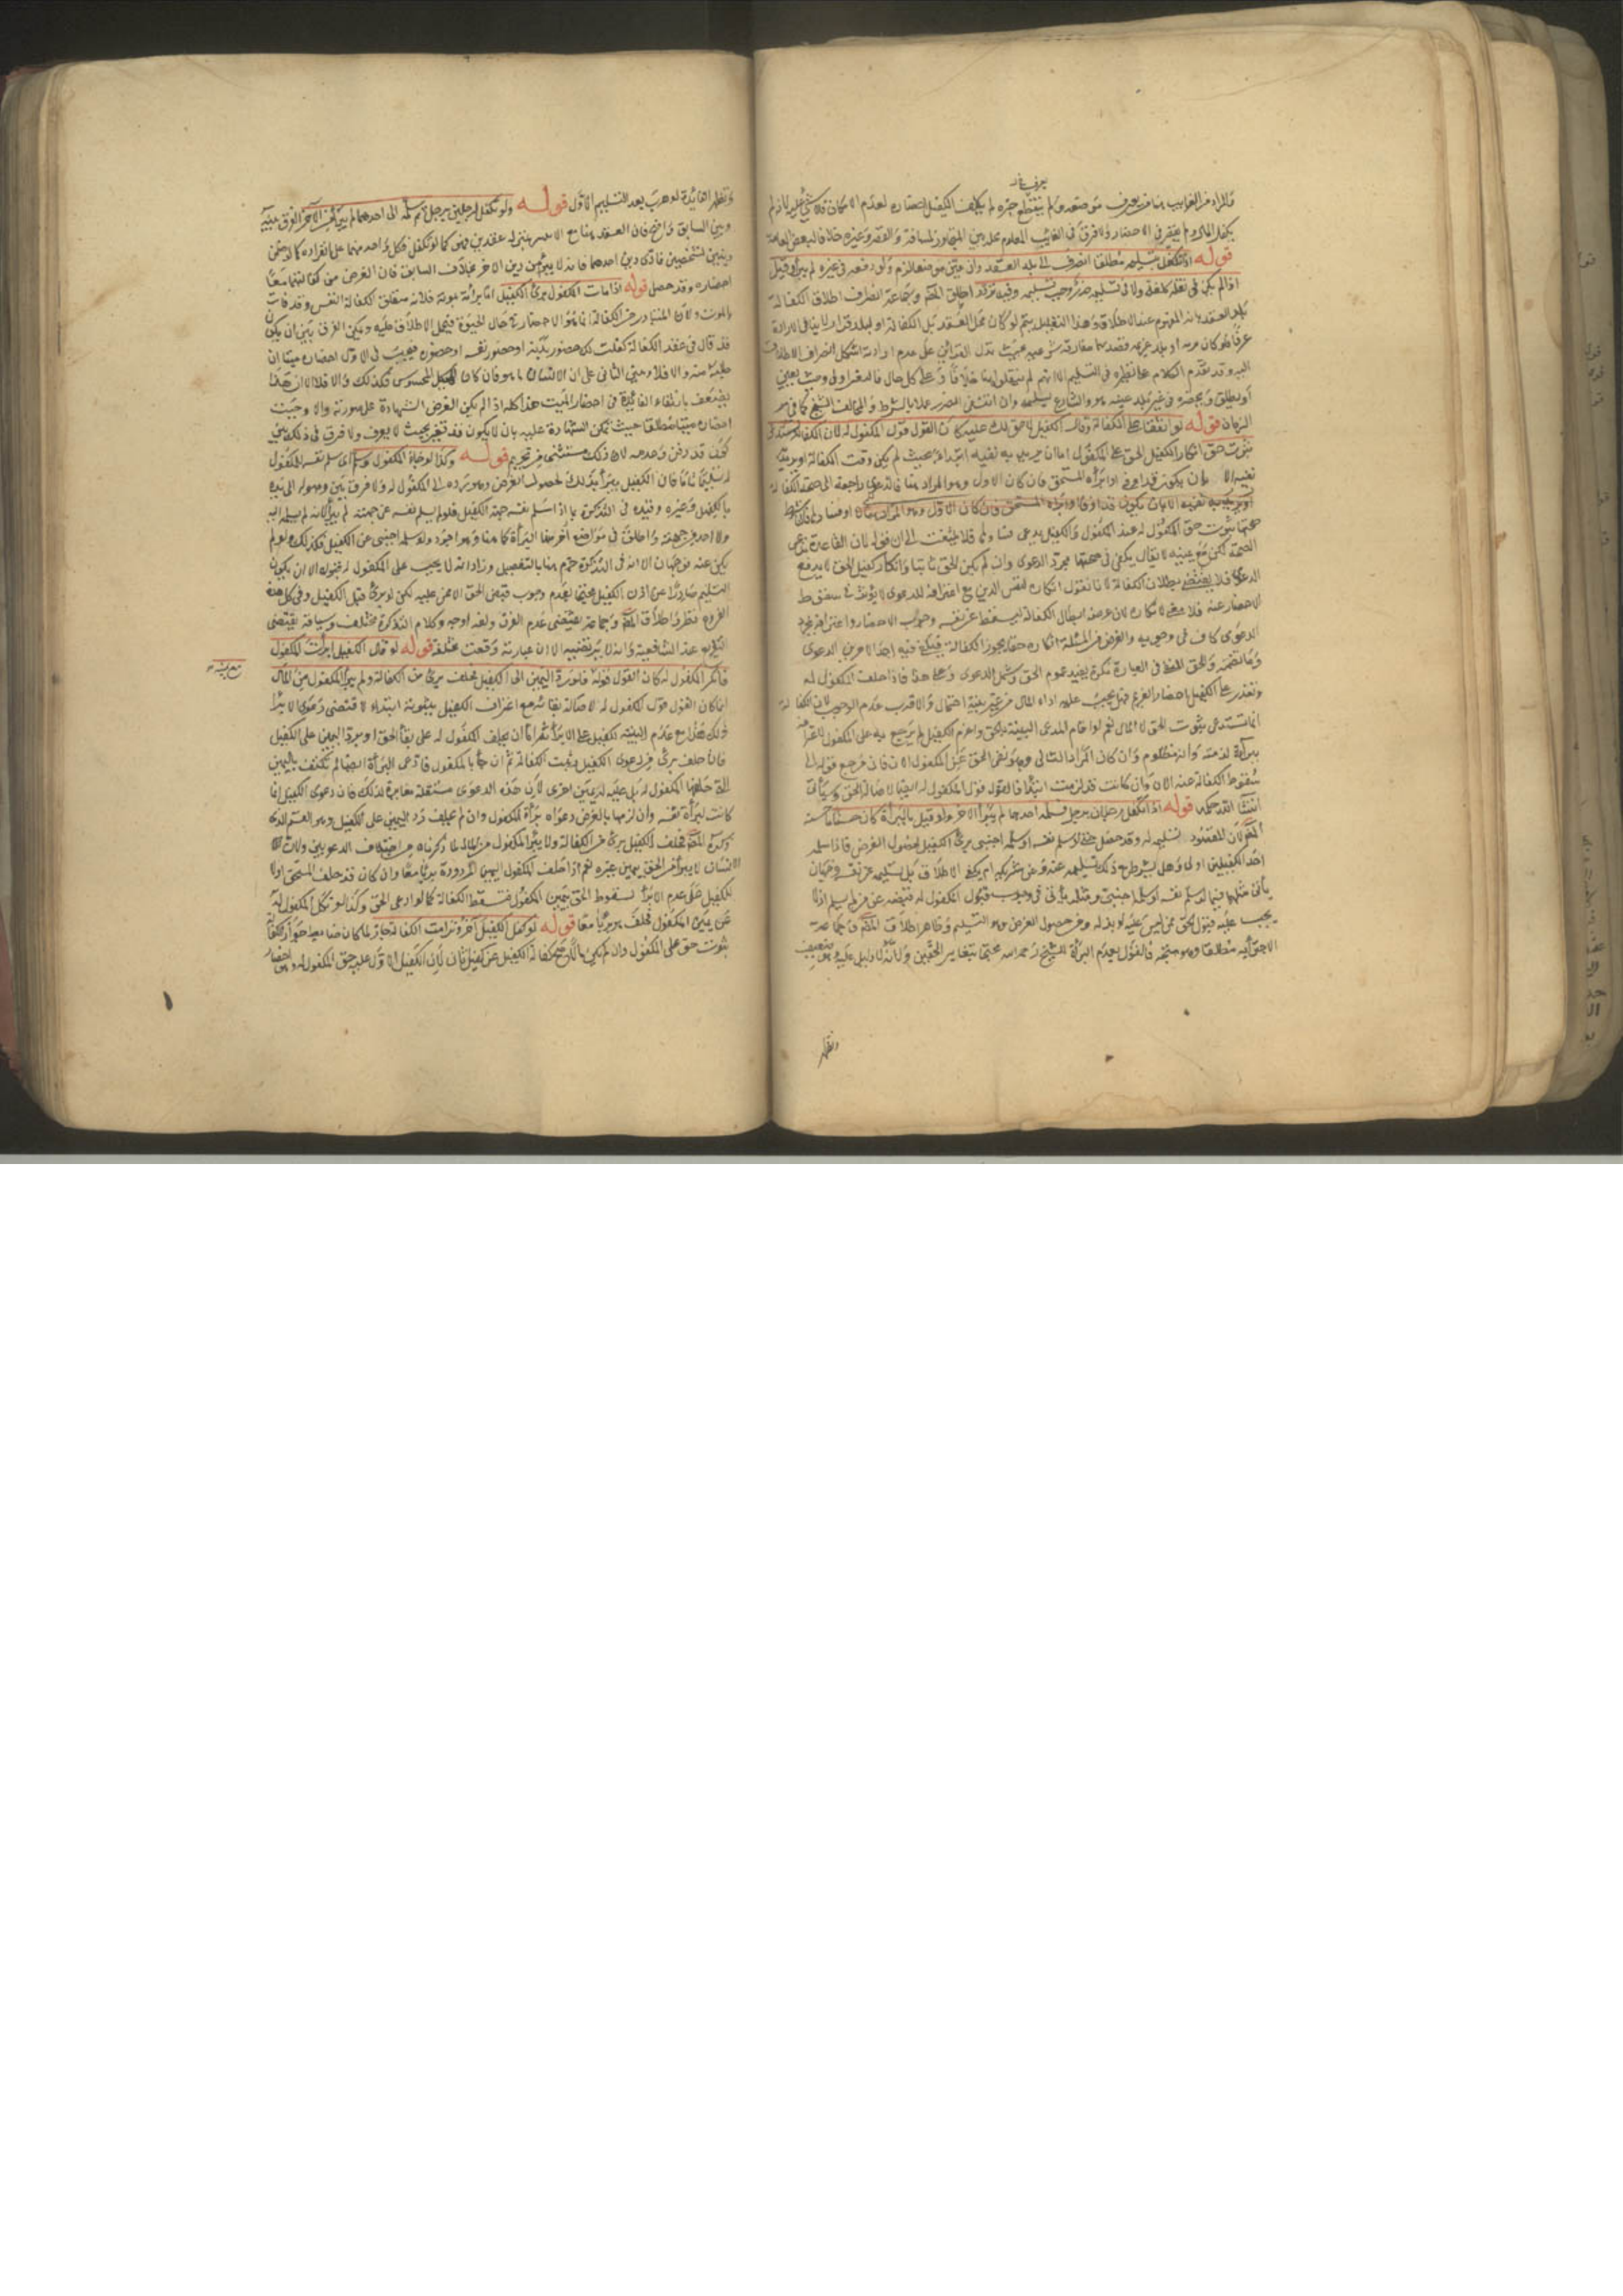 يعرف خبره
فالمراد من الغايب هنا من يعرف موضعه ولم ينقطع خبره لم يكلف الكفيل احضاره لعدم الامكان فلا شيء عليه لانه لم
يكفل المال ولم يقصر في الاحضار ولا فرق في الغايب المعلوم محله بين المتجاوز لمسافة القصر وغيره خلافا لبعض العامة
قوله اذا تكفل بتسليمه مطلقا انصرف الى بلد العقد وان عين موضعا لزم ولو دفعه في غيره لم يبرأ وقيل
اذا لم يكن في نقله كلفة ولا في تسليمه ضرر وجب تسلمه وفيه تردد اطلق المصنف وجماعة انصراف اطلاق الكفالة
بلد العقد لانه المفهوم عند الاطلاق وهذا التعليل يتم لو كان محل العقد بلد الكفالة او بلد قرار لا ينافي الارادة
عرفا فلو كان برية او بلد غربة قصدهما مفارقته سريعا بحيث تدل القرائن على عدم ارادته اشكل انصراف الاطلاق
اليه وقد تقدم الكلام على نظيره في التسليم الا انهم لم ينقلوا هنا خلافا وعلى كل حال فالمعتبر اولى وحيث يعين
او يطلق ويحضره في غير بلد عينه هو والشارع لم يلزمه وان انتفى الضرر عملا بالشرط والمخالف الشيخ كما في سر
الزمان قوله لو اتفقا على الكفالة وقال الكفيل لا حق لك عليه كان القول قول المكفول له لان الكفالة تستدعي
ثبوت حق انكار الكفيل الحق على المكفول اما ان يريد به نفيه ابتداء بحيث لم يكن وقت الكفالة او يريد
نفيه الان بان يكون قد اوفى او ابرأه المستحق فان كان الاول وهو المراد هنا فالدعوى راجعة الى صحة الكفالة
صحتها ثبوت حق المكفول له عند المكفول والكفيل يدعي فسادها فلا يلتفت الى قوله لان القاعدة تقديم مدعي
الصحة لكن مع يمينه لا يقال يكفي في صحتها مجرد الدعوى وان لم يكن الحق ثابتا وانكار الكفيل الحق لا يدفع
الدعوى فلا يقتضي بطلان الكفالة لانا نقول انكاره لنفس الدين مع اعترافه للدعوى لا يؤثر في سقوط
الاحضار عنه فلا معنى لانكاره لان غرضه ابطال الكفالة ليسقط عن نفسه وجوب الاحضار واعترافه بمجرد
الدعوى كاف في وجوبه والغرض من المسئلة انكاره حقا يجوز الكفالة فيكفي فيه ايضا الاعتراف بالدعوى
وما تضمنه والحق اللفظ في العبارة نكرة يفيد عموم الحق ويشمل الدعوى وعلى هذا فاذا حلف المكفول له
وتعذر على الكفيل احضار الغريم فهل يجب عليه اداء المال من غير بينة احتمال والاقرب عدم الوجوب لان الكفالة
انما تستدعي ثبوت الحق لا المال نعم لو اقام المدعي البينة بالحق واغرم الكفيل لم يرجع به على المكفول لاعترافه
ببراءة ذمته وانه مظلوم وان كان المراد الثاني وهو نفي الحق عن المكفول الان فانه مرجع قوله الى
سقوط الكفالة عنه الان وان كانت قد لزمت ابتداء فالقول قول المكفول له ايضا لاصالة بقاء الحق وسيأتي
انشا الله حكمه قوله اذا تكفل رجلان برجل فسلمه احدهما لم يبرأ الاخر ولو قيل بالبراءة كان حسنا ما حسنه
المصنف لان المقصود تسليمه له وقد حصل حتى لو سلم نفسه او سلمه اجنبي برئ الكفيل لحصول الغرض فاذا سلمه
احد الكفيلين اولى وهل يشترط مع ذلك تسليمه عنه وعن شريكه ام يكفي الاطلاق بل تسليمه عن نفسه وجهان
يأتي مثلهما فيما لو سلم نفسه او سلمه اجنبي ومثله يأتي في وجوب قبول المكفول له قبضه عمن لم يسلم اذ لا
يجب عليه قبول الحق ممن ليس عليه لو بذله ومن حصول الغرض وهو التسليم وظاهر اطلاق المصنف وجماعة
الاجتزا به مطلقا وهو متجه فالقول بعدم البراءة للشيخ رحمه الله محتجا بتغاير الحقين ولانه لا دليل عليه وهو ضعيف
وتظهر
وتظهر الفائدة لو هرب بعد التسليم الاول قوله ولو تكفل لرجلين برجل ثم سلمه الى احدهما لم يبرأ من الآخر الفرق بينه
وبين السابق واضح فان العقد هنا مع الاثنين بمنزلة عقدين فهو كما لو تكفل لكل واحد منهما على انفراده كما لو ضمن
دينين لشخصين فادى دين احدهما فانه لا يبرأ من دين الاخر بخلاف السابق فان الغرض من كفالتهما معا
احضاره وقد حصل قوله اذا مات المكفول برئ الكفيل اما براءته بموته فلانه متعلق الكفالة النفس وقد فات
بالموت ولان المتبادر من الكفالة انما هو الاحضار في حال الحيوة فيحمل الاطلاق عليه ويمكن الفرق بين ان يكون
قد قال في عقد الكفالة كفلت لك حضور بدنه او حضور نفسه او حضوره فيجب في الاول احضاره ميتا ان
طلبه منه والا فلا ومبنى الثاني على ان الانسان ما هو فان كان الهيكل المحسوس فكذلك والا فلا الا ان هذا
يضعف بانتفاء الفائدة في احضار الميت هذا كله اذا لم يكن الغرض الشهادة على صورته والا وجب
احضاره ميتا مطلقا حيث تمكن الشهادة عليه بان لا يكون قد تغير بحيث لا يعرف ولا فرق في ذلك بين
كونه قد دفن وعدمه لان ذلك مستثنى من تحريم قوله وكذا لو جاء المكفول وسلم اي سلم نفسه للمكفول
له تسليما تاما فان الكفيل يبرأ بذلك لحصول الغرض وهو رده الى المكفول له ولا فرق بين وصوله الى يده
بالكفيل وغيره وقيده في التذكرة بما اذا سلم نفسه جهة الكفيل فلو لم يسلم نفسه عن جهته لم يبرأ لانه لم يسلمه اليه
ولا احد من جهته واطلق في مواضع اخر منها البراءة كما هنا وهو اجود ولو سلمه اجنبي عن الكفيل فكذلك ولو لم
يكن عنه فوجهان الا انه في التذكرة جزم هنا بالتفصيل وزاد انه لا يجب على المكفول له قبوله الا ان يكون
التسليم صادرا عن اذن الكفيل محتجا بعدم وجوب قبض الحق الا ممن عليه لكن لو قبل برئ الكفيل وفي كل هذه
الفروع نظر واطلاق المصنف وجماعة يقتضي عدم الفرق ولعله اوجه وكلام التذكرة مختلف وسياقه يقتضي
التفريع عند الشافعية وانه لا يرتضيه الا ان عبارته وقعت مختلفة قوله لو قال الكفيل ابرأت المكفول
فانكر المكفول له كان القول قوله فلو رد اليمين الى الكفيل فحلف برئ من الكفالة ولم يبرأ المكفول من المال
انما كان القول قول المكفول له لاصالة بقائه مع اعتراف الكفيل بثبوته ابتداء لاقتضى دعوى الابراء
ذلك هذا مع عدم البينة الكفيل على الابراء ثم اما ان يحلف المكفول له على بقاء الحق او يرد اليمين على الكفيل
فان حلف برئ من دعوى الكفيل وثبت الكفالة ثم ان جاء بالمكفول فادعى البراءة ايضا لم يكتف باليمين
التي حلفها المكفول له بل عليه له يمين اخرى لان هذه الدعوى مستقلة مغايرة لذلك فان دعوى الكفيل انما
كانت لبراءة نفسه وان لزمها بالعرض دعواه براءة المكفول وان لم يحلف ورد اليمين على الكفيل وهو القسم الذي
ذكره المصنف فحلف الكفيل برئ من الكفالة ولا يبرأ المكفول من المال لما ذكرناه من اختلاف الدعويين ولان
الانسان لا يبرأ من الحق بيمين غيره نعم اذا حلف المكفول اليمين المردودة برئا معا وان كان قد حلف المستحق اولا
للكفيل على عدم الابراء لسقوط الحق بيمين المكفول فتسقط الكفالة كما لو ادعى الحق وكذا لو نكل المكفول له
عن يمين المكفول فحلف هو برئا معا قوله لو كفل الكفيل آخر وترامت الكفالة جاز لما كان ضابط جواز كفالة
ثبوت حق على المكفول وان لم يكن مالا صح كفالة الكفيل من كفيل ثان لان الكفيل الاول عليه حق للمكفول له وهو احضار